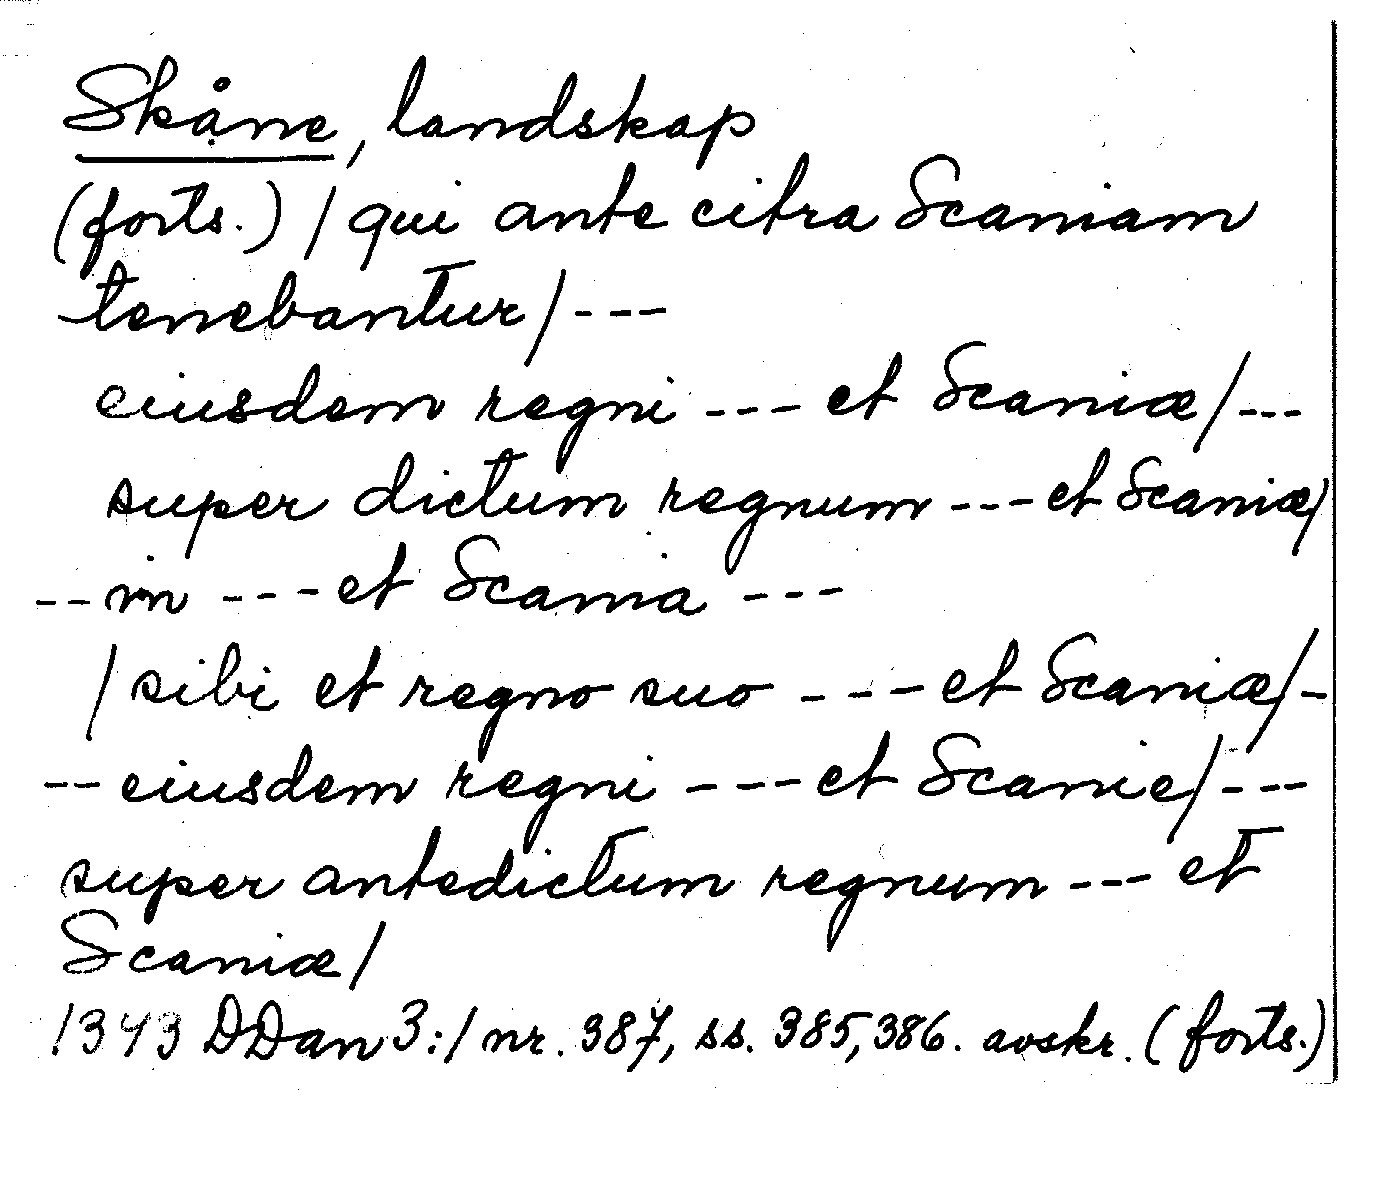 Skåne, landskap
(forts.) / qui ante citra Scaniam
tenebantur/---
eiusdem regni --- et Scaniæ/---
super dictum regnum --- et Scaniæ/
-- in --- et Scania ---
/ sibi et regno suo --- et Scaniæ/-
-- eiusdem regni --- et Scanie/---
super antedictum regnum --- et
Scaniæ/
1343 DDan 3:1 nr. 387, ss. 385, 386. avskr. (forts.)